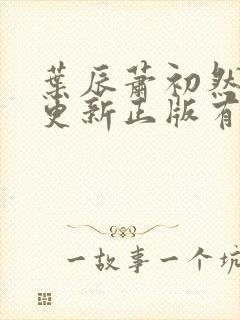 葉辰蕭初然
更新正版有
一故事一个坑